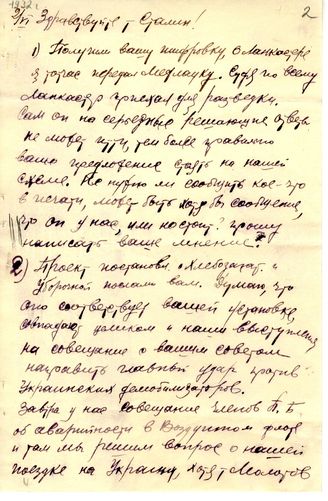 1932 г. 2
3/VII Здравствуйте т. Сталин!
1) Получил вашу шифровку, о Ланкастере
я тотчас передал Межлауку. Судя по всему
Ланкастер приехал для разведки.
Сам он на серьезные решающие ответы
не может итти, тем более правильно
ваше предложение стоять на нашей
схеме. Но нужно ли сообщить кое-что
в печати, может быть хотя бы сообщение,
что он у нас, или не стоит? прошу
написать ваше мнение.
2) Проект постановл. о Хлебозагот. и
Уборочной послали вам. Думаю, что
оно соответствует вашей установке,
целиком и наши выступления
на совещание с вашим советом
направить главный удар против
Украинских демобилизаторов.
Завтра у нас совещание членов П. Б
об аварийности в Воздушном флоте
и там мы решим вопрос о нашей
поездке на Украину, хотя т. Молотов